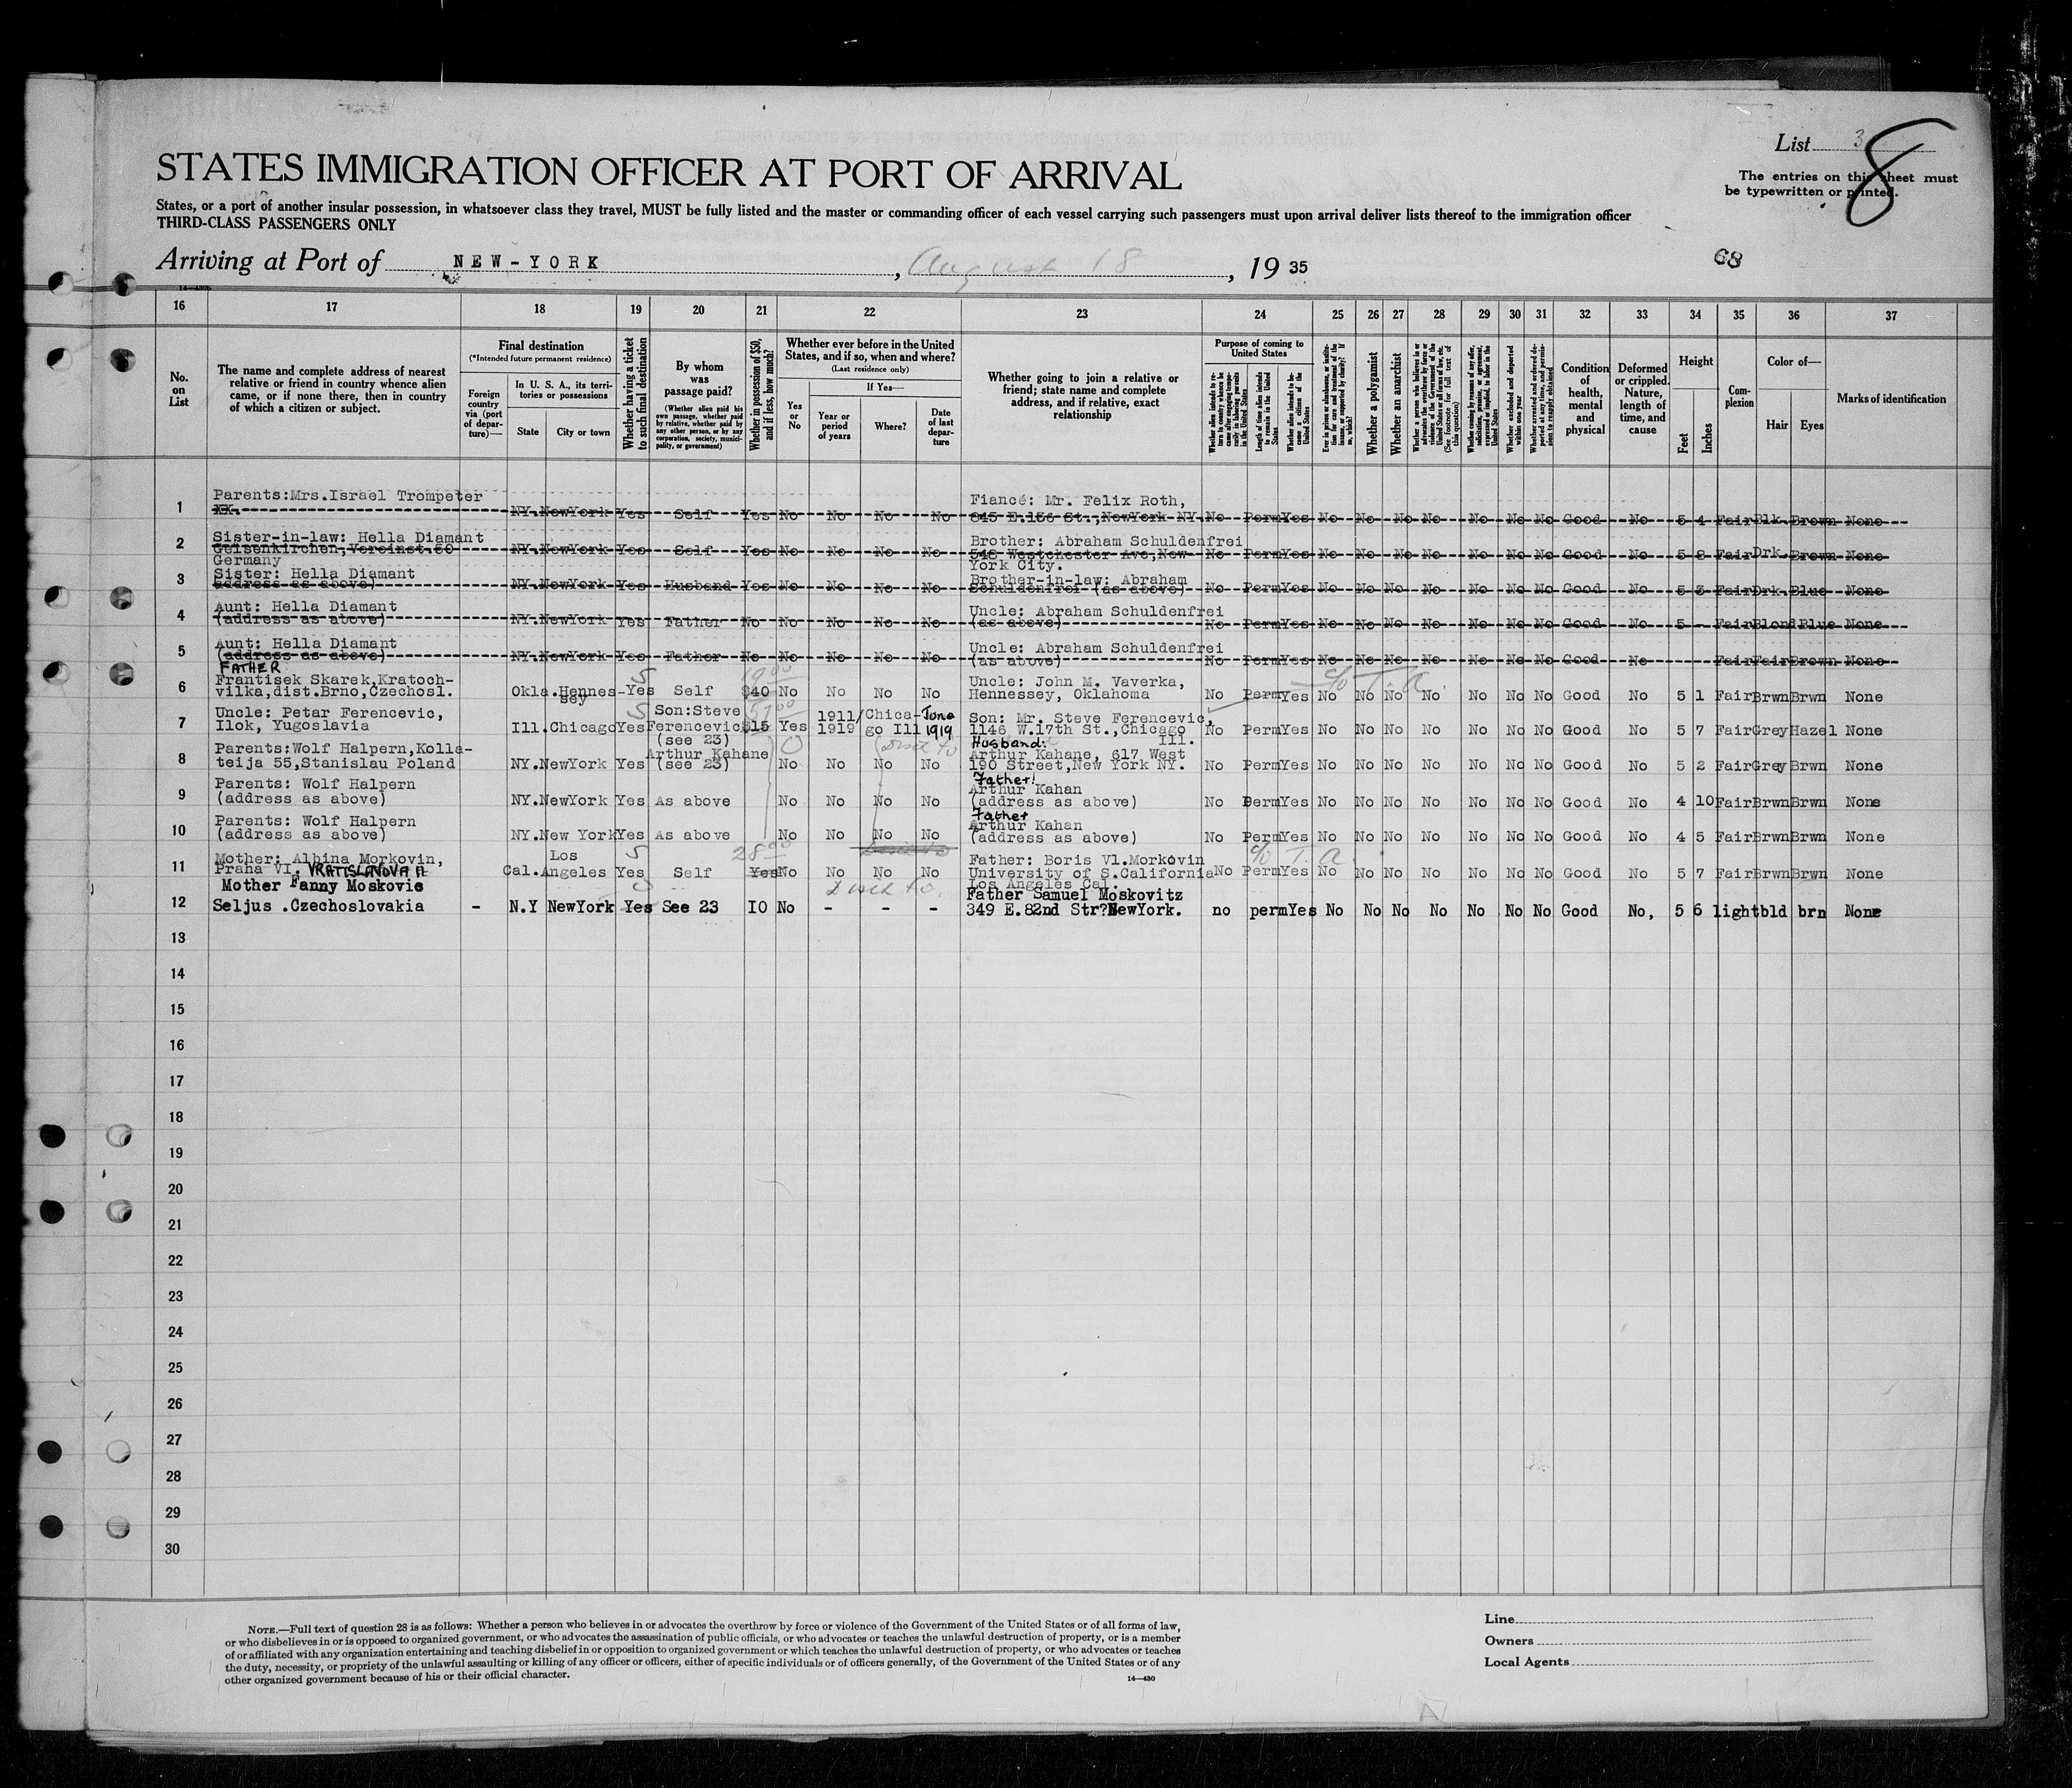 List 3
8
The entries on this sheet must
be typewritten or printed.
STATES IMMIGRATION OFFICER AT PORT OF ARRIVAL
States, or a port of another insular possession, in whatsoever class they travel, MUST be fully listed and the master or commanding officer of each vessel carrying such passengers must upon arrival deliver lists thereof to the immigration officer
THIRD-CLASS PASSENGERS ONLY
Arriving at Port of NEW-YORK, August 18, 1935
68
16 17 18 19 20 21 22 23 24 25 26 27 28 29 30 31 32 33 34 35 36 37
No. on List
The name and complete address of nearest relative or friend in country whence alien came, or if none there, then in country of which a citizen or subject.
Final destination
(*Intended future permanent residence)
Foreign country via (port of departure)—
In U. S. A., its territories or possessions
State
City or town
Whether having a ticket to such final destination
By whom was passage paid?
(Whether alien paid his own passage, whether paid by relative, whether paid by any other person, or by any corporation, society, municipality, or government)
Whether in possession of $50, and if less, how much?
Whether ever before in the United States, and if so, when and where?
(Last residence only)
Yes or No
If Yes—
Year or period of years
Where?
Date of last departure
Whether going to join a relative or friend; state name and complete address, and if relative, exact relationship
Purpose of coming to United States
Length of time alien intends to remain in the United States
Whether alien intends to become a citizen of the United States
Whether a polygamist
Whether an anarchist
Condition of health, mental and physical
Deformed or crippled. Nature, length of time, and cause
Height
Feet
Inches
Complexion
Color of—
Hair
Eyes
Marks of identification
1 Parents:Mrs.Israel Trompeter XX. NY. NewYork Yes Self Yes No No No No Fiancé: Mr. Felix Roth, 845 E.156 St.,NewYork NY. No Perm Yes No No No No No No No Good No 5 4 Fair Blk. Brown None
2 Sister-in-law: Hella Diamant Gelsenkirchen,Vereinst.60 Germany NY. NewYork Yes Self Yes No No No No Brother: Abraham Schuldenfrei 548 Westchester Ave,New York City. No Perm Yes No No No No No No No Good No 5 8 Fair Drk. Brown None
3 Sister: Hella Diamant address as above) NY. NewYork Yes Husband Yes No No No No Brother-in-law: Abraham Schuldenfrei (as above) No Perm Yes No No No No No No No Good No 5 3 Fair Drk. Blue None
4 Aunt: Hella Diamant (address as above) NY. NewYork Yes Father No No No No No Uncle: Abraham Schuldenfrei (as above) No Perm Yes No No No No No No No Good No 5 - Fair Blond Blue None
5 Aunt: Hella Diamant (address as above) NY. NewYork Yes Father No No No No No Uncle: Abraham Schuldenfrei (as above) No Perm Yes No No No No No No No Good No Fair Fair Brown None
6 FATHER Frantisek Skarek,Kratochvilka,dist.Brno,Czechosl. Okla. Hennes-sey Yes Self $40 No No No No Uncle: John M. Vaverka, Hennessey, Oklahoma No Perm Yes No No No No No No No Good No 5 1 Fair Brwn Brwn None
7 Uncle: Petar Ferencevic, Ilok, Yugoslavia Ill. Chicago Yes Son:Steve Ferencevic (see 23) $15 Yes 1911/1919 Chicago Ill June 1919 Son: Mr. Steve Ferencevic, 1146 W.17th St.,Chicago Ill. No Perm Yes No No No No No No No Good No 5 7 Fair Grey Hazel None
8 Parents:Wolf Halpern,Kollateija 55,Stanislau Poland NY. NewYork Yes Arthur Kahane (see 23) 0 No No No No Husband: Arthur Kahane, 617 West 190 Street,New York NY. No Perm Yes No No No No No No No Good No 5 2 Fair Grey Brwn None
9 Parents: Wolf Halpern (address as above) NY. NewYork Yes As above No No No No Father: Arthur Kahan (address as above) No Perm Yes No No No No No No No Good No 4 10 Fair Brwn Brwn None
10 Parents: Wolf Halpern (address as above) NY. New York Yes As above No No No No Father Arthur Kahan (address as above) No Perm Yes No No No No No No No Good No 4 5 Fair Brwn Brwn None
11 Mother: Albina Morkovin, Praha VI. VRATISLAVOVA Cal. Los Angeles Yes Self Yes 28 00 No No No No Father: Boris Vl.Morkovin University of S.California Los Angeles Cal. No Perm Yes No No No No No No No Good No 5 7 Fair Brwn Brwn None
12 Mother Fanny Moskovic Seljus .Czechoslovakia - N.Y NewYork Yes See 23 I0 No - - - Father Samuel Moskovitz 349 E.82nd Str?NewYork. no perm Yes No No No No No No No Good No, 5 6 light bld brn None
13
14
15
16
17
18
19
20
21
22
23
24
25
26
27
28
29
30
NOTE.—Full text of question 28 is as follows: Whether a person who believes in or advocates the overthrow by force or violence of the Government of the United States or of all forms of law,
or who disbelieves in or is opposed to organized government, or who advocates the assassination of public officials, or who advocates or teaches the unlawful destruction of property, or is a member
of or affiliated with any organization entertaining and teaching disbelief in or opposition to organized government or which teaches the unlawful destruction of property, or who advocates or teaches
the duty, necessity, or propriety of the unlawful assaulting or killing of any officer or officers, either of specific individuals or of officers generally, of the Government of the United States or of any
other organized government because of his or their official character.
14—430
Line
Owners
Local Agents